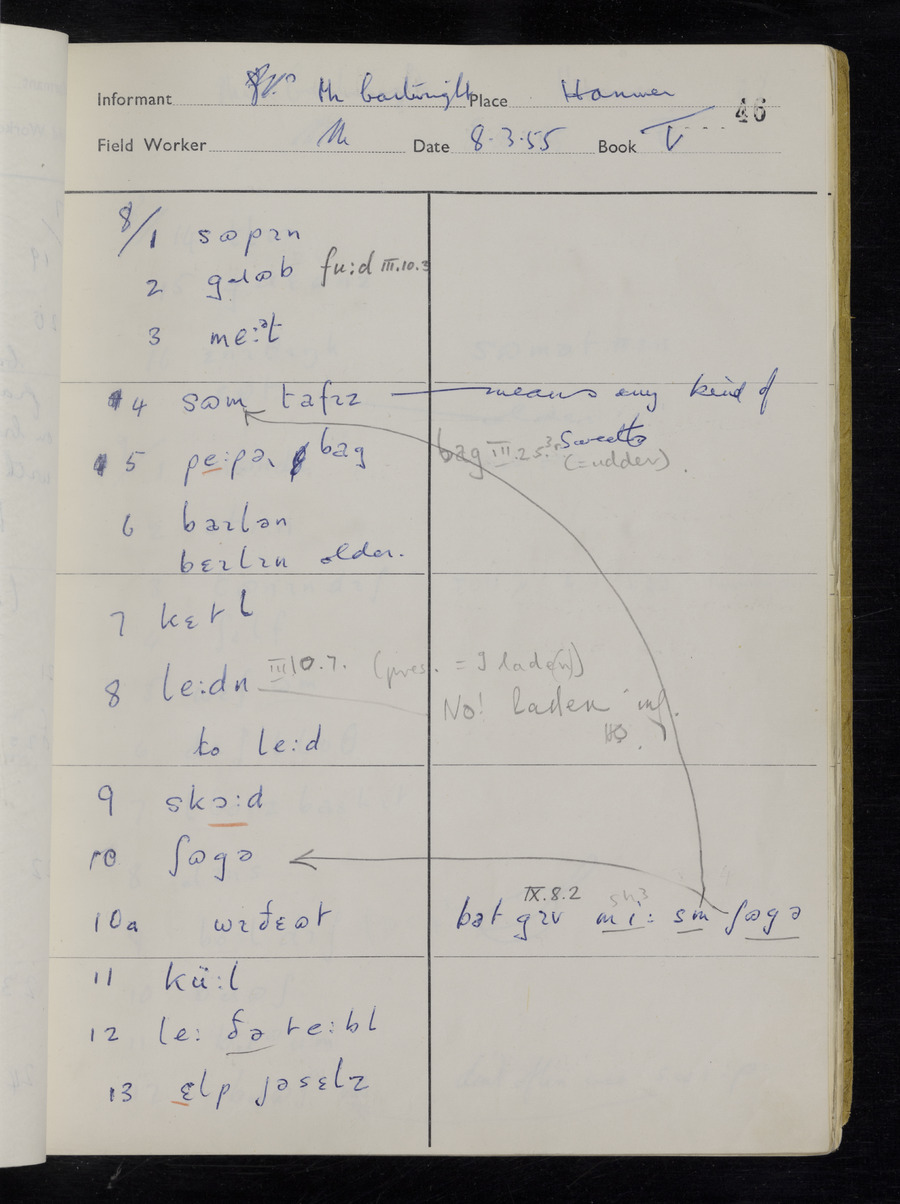 Informant Mr Cartwright Place Hanmer 46
Field Worker Date 8.3.55 Book V
8/1 sɷpɪn
2 gɹɷb fu:d III.10.3
3 me:ət
4 sɷm tafɪz — means any kind of sweets
5 pe:pə bag bag III.2.5. (=udder).
6 baɪlən
bɛɪlɪn older.
7 kɛtl
8 le:dn III 10.7. (pres. = I lade(n))
No! laden inf.
to le:d
9 skɔ:d
10 ʃɷgə
10a wɪðɛɷt bət gɪv mi: sm ʃɷgə IX.8.2
11 kü:l
12 le: ðə te:bl
13 ɛlp jəsɛlz